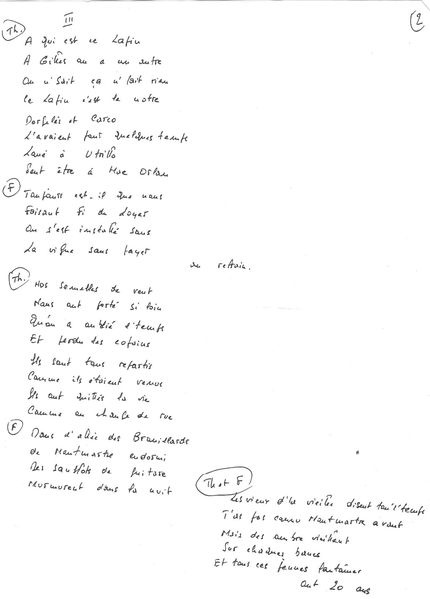 III
2
Th.
A qui est ce Lapin
A Gilles ou a un autre
On n'sait ça n'fait rien
Ce Lapin c'est le notre
Dorgelès et Carco
L'avaient pour quelques temps
Loué à Utrillo
Peut être à Mac Orlan
F
Toujours est-il que nous
Faisant fi du loyer
On s'est installé sans
La vigne sans payer
au refrain.
Th.
Nos semelles de vent
Nous ont porté si loin
Qu'on a oublié l'temps
Et perdu des copains
Ils sont tous repartis
Comme ils étaient venus
Ils ont quittés la vie
Comme on change de rue
F
Dans l'allée des Brouillards
de Montmartre endormi
Des sanglots de guitare
Murmurent dans la nuit
Th et F
Les vieux d'la vieille disent tout l'temps
T'as pas connu Montmartre avant
Mais des ombre
Sur bancs
Et tous ces jeunes fantômes
ont 20 ans